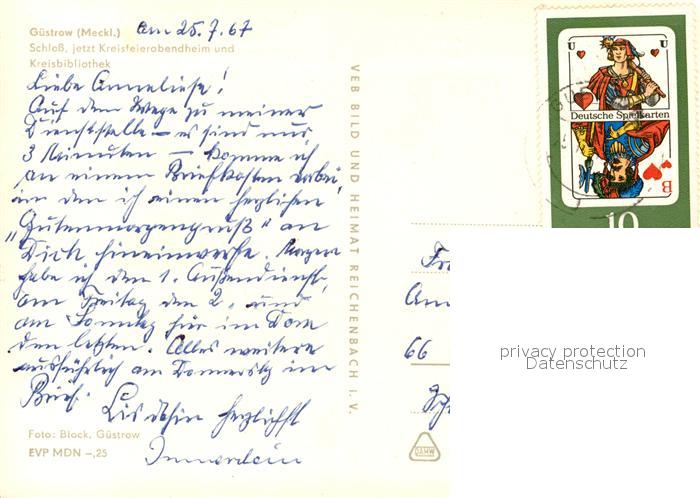 Güstrow (Meckl.) am 25.7.67
Schloß, jetzt Kreisfeierabendheim und
Kreisbibliothek
Liebe Anneliese!
Auf dem Wege zu meiner
Dienststelle – es sind nur
3 Minuten – komme ich
an einem Briefkasten vorbei,
in den ich einen herzlichen
„Gutenmorgengruß" an
Dich hineinwerfe. Morgen
habe ich den 1. Außendienst,
am Freitag den 2., und
am Sonntag hier im Dom
den letzten. Alles weitere
ausführlich am Donnerstag im
Brief. Bis dahin herzlichst
Foto: Block, Güstrow
EVP MDN –,25
VEB BILD UND HEIMAT REICHENBACH I. V.
DAMW
U U
Deutsche Spielkarten
B
10
66
privacy protection
Datenschutz